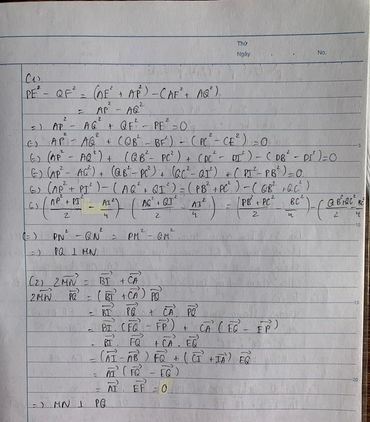 Thứ
Ngày . . No.
C1)
PE² - QF² = (AE² + AP²) - (AF² + AQ²)
= AP² - AQ²
=) AP² - AQ² + QF² - PE² = 0
(=) AP² - AQ² + (QB² - BF²) - (PC² - CE²) = 0
(=) (AP² - AQ²) + (QB² - PC²) + (DC² - DI²) - (DB² - DI²) = 0
(=) (AP² - AQ²) + (QB² - PC²) + (QC² - QI²) + (PI² - PB²) = 0
(=) (AP² + PI²) - (AQ² + QI²) = (PB² + PC²) - (QB² + QC²)
(=) (AP² + PI²/2 - AI²/4) - (AQ² + QI²/2 - AI²/4) = (PB² + PC²/2 - BC²/4) - (QB² + QC²/2 - BC²/4)
(=) PN² - QN² = PM² - QM²
=) PQ ⊥ MN
C2) 2MN = BI + CA
2MN PQ = (BI + CA) PQ
= BI PQ + CA . PQ
= BI . (FQ - FP) + CA (EQ - EP)
= BI FQ + CA . EQ
= (AI - AB) FQ + (CI + IA) EQ
= AI (FQ - EQ)
= AI EF = 0
=) MN ⊥ PQ